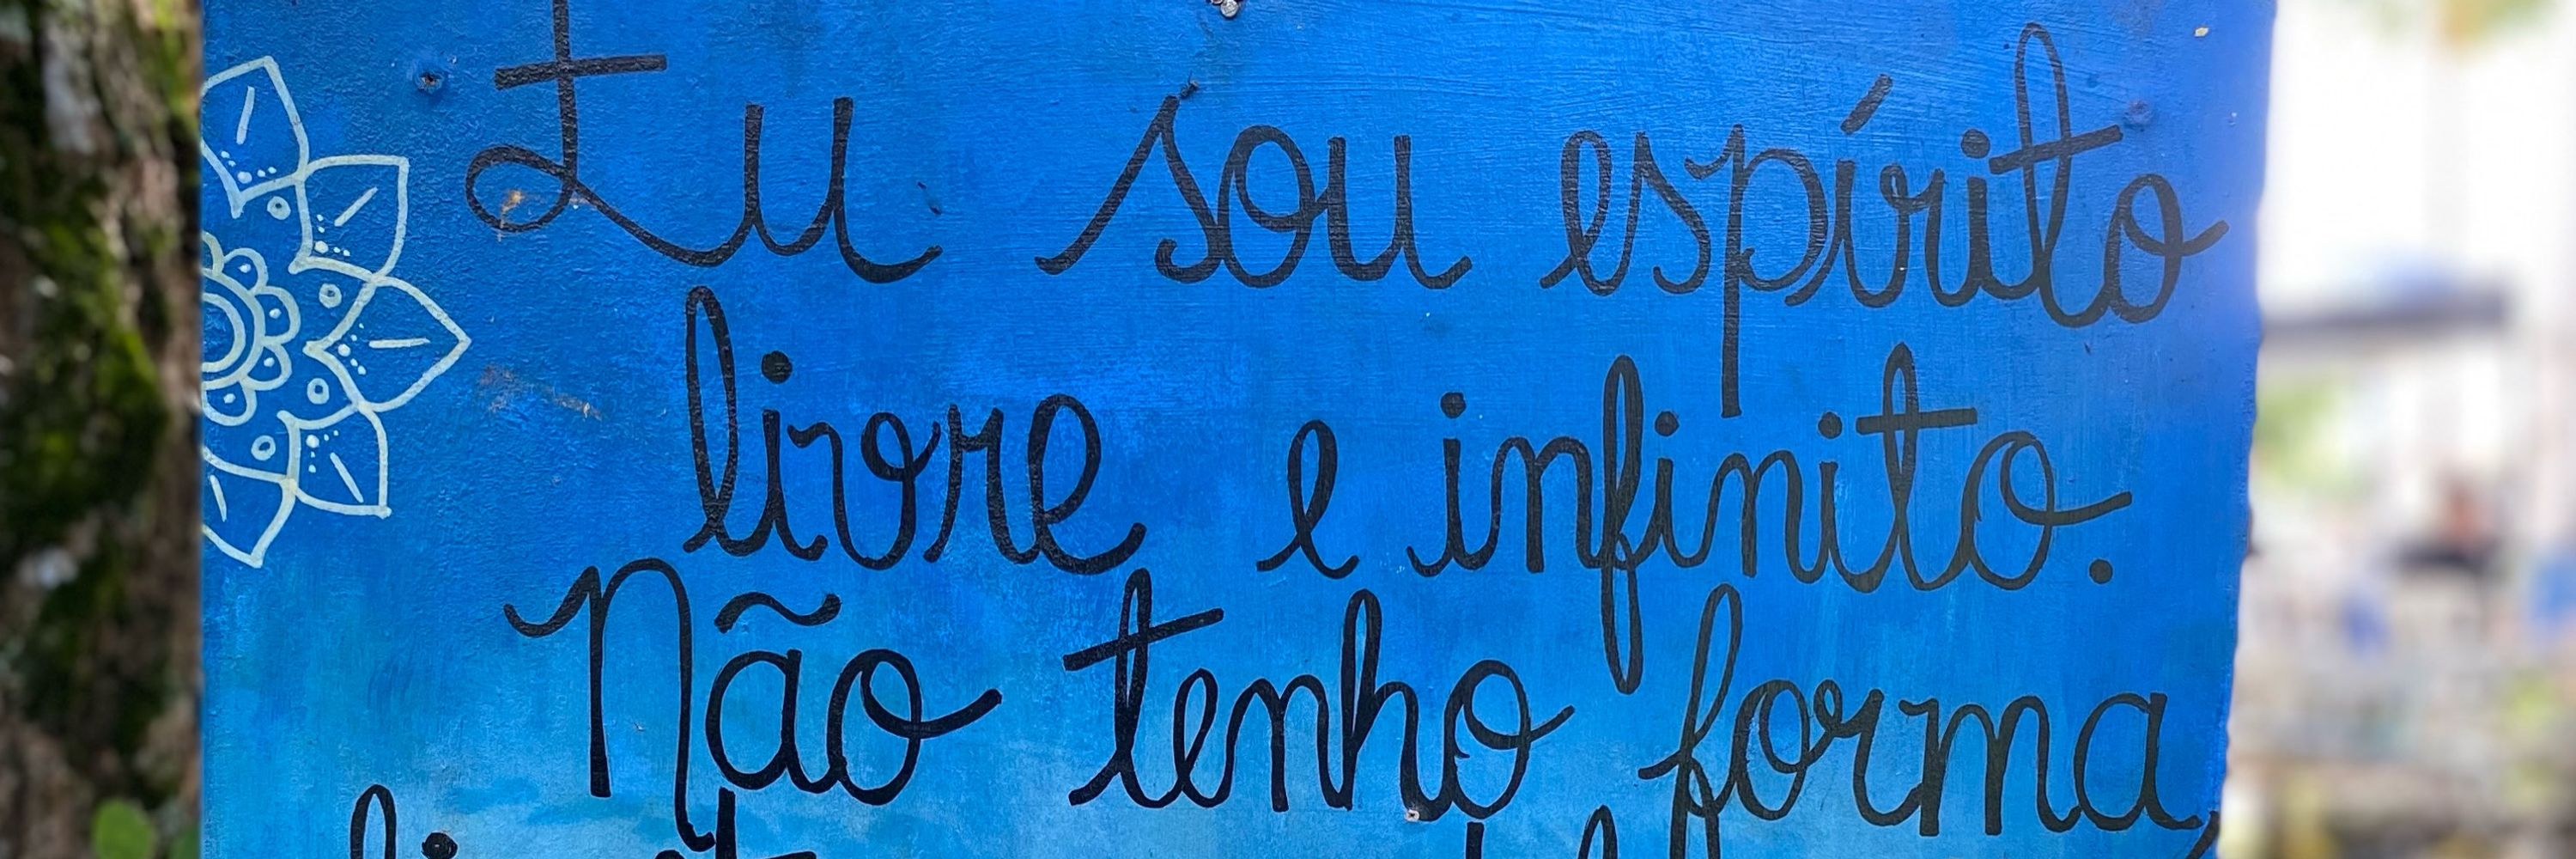 Eu sou espírito
livre e infinito.
Não tenho forma,